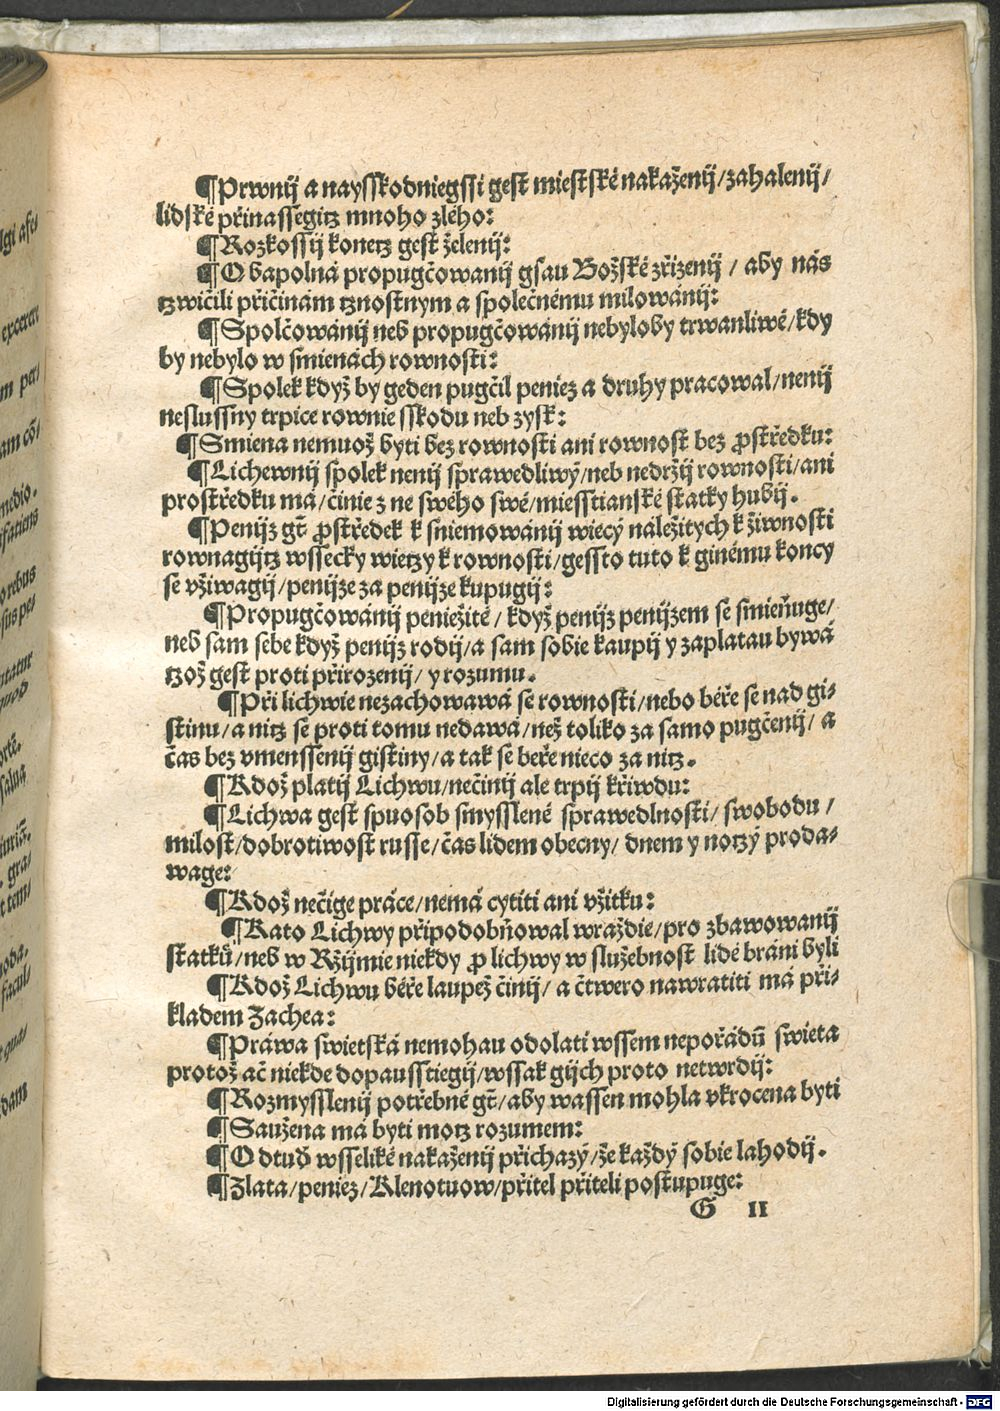 ¶Prwnij a naysskodniegssi gest miestské nakaženij/zahalenij/
lidské přinassegitz mnoho zlého:
¶Rozkossij konetz gest želenij:
¶Obapolná propugčowanij gsau Božské zřizenij / aby nás
tzwičili přičinám tznostnym a společnému milowánij:
¶Spolčowánij neb propugčowánij nebyloby trwanliwé/kdy
by nebylo w smienách rownosti:
¶Spolek když by geden pugčil peniez a druhy pracowal/nenij
neslussny trpice rownie sskodu neb zysk:
¶Smiena nemuož byti bez rownosti ani rownost bez ꝓstředku:
¶Lichewnij spolek nenij sprawedliwý/neb nedržij rownosti/ani
prostředku má/činie z ne swého swé/miesstianské statky hubij.
¶Penijz gt̄ ꝓstředek k smiemowánij wiecý náležitych k žiwnosti
rownagijtz wssecky wietzy k rownosti/gessto tuto k ginému koncy
se vžiwagij/penijze za penijze kupugij:
¶Propugčowánij peniežité/ když penijz penijzem se smieňuge/
neb sam sebe když penijz rodij/a sam sobie kaupij y zaplatau bywá
tzož gest proti přirozenij/ y rozumu.
¶Při lichwie nezachowawá se rownosti/nebo béře se nad gi-
stinu/a nitz se proti tomu nedawá/než toliko za samo pugčenij/ a
čas bez vmenssenij gistiny/a tak se beře nieco za nitz.
¶Kdož platij Lichwu/nečinij ale trpij křiwdu:
¶Lichwa gest spuosob smysslené sprawedlnosti/ swobodu /
milost/dobrotiwost russe/čas lidem obecny/ dnem y notzý proda-
wage:
¶Kdož nečige práce/nemá cytiti ani vžitku:
¶Kato Lichwy připodobňowal wraždie/pro zbawowanij
statků/neb w Ržijmie niekdy ꝓ lichwy w služebnost lidé bráni byli
¶Kdož Lichwu béře laupež činij/ a čtwero nawratiti má při-
kladem Zachea:
¶Práwa swietská nemohau odolati wssem nepořádů swieta
protož ač niekde dopausstiegij/wssak gijch proto netwrdij:
¶Rozmysslenij potřebné gt̄/aby wassen mohla vkrocena byti
¶Saužena má byti motz rozumem:
¶Odtud wsseliké nakaženij přichazý/že každý sobie lahodij.
¶Zlata/peniez/Klenotuow/přitel příteli postupuge:
G II
Digitalisierung gefördert durch die Deutsche Forschungsgemeinschaft - DFG